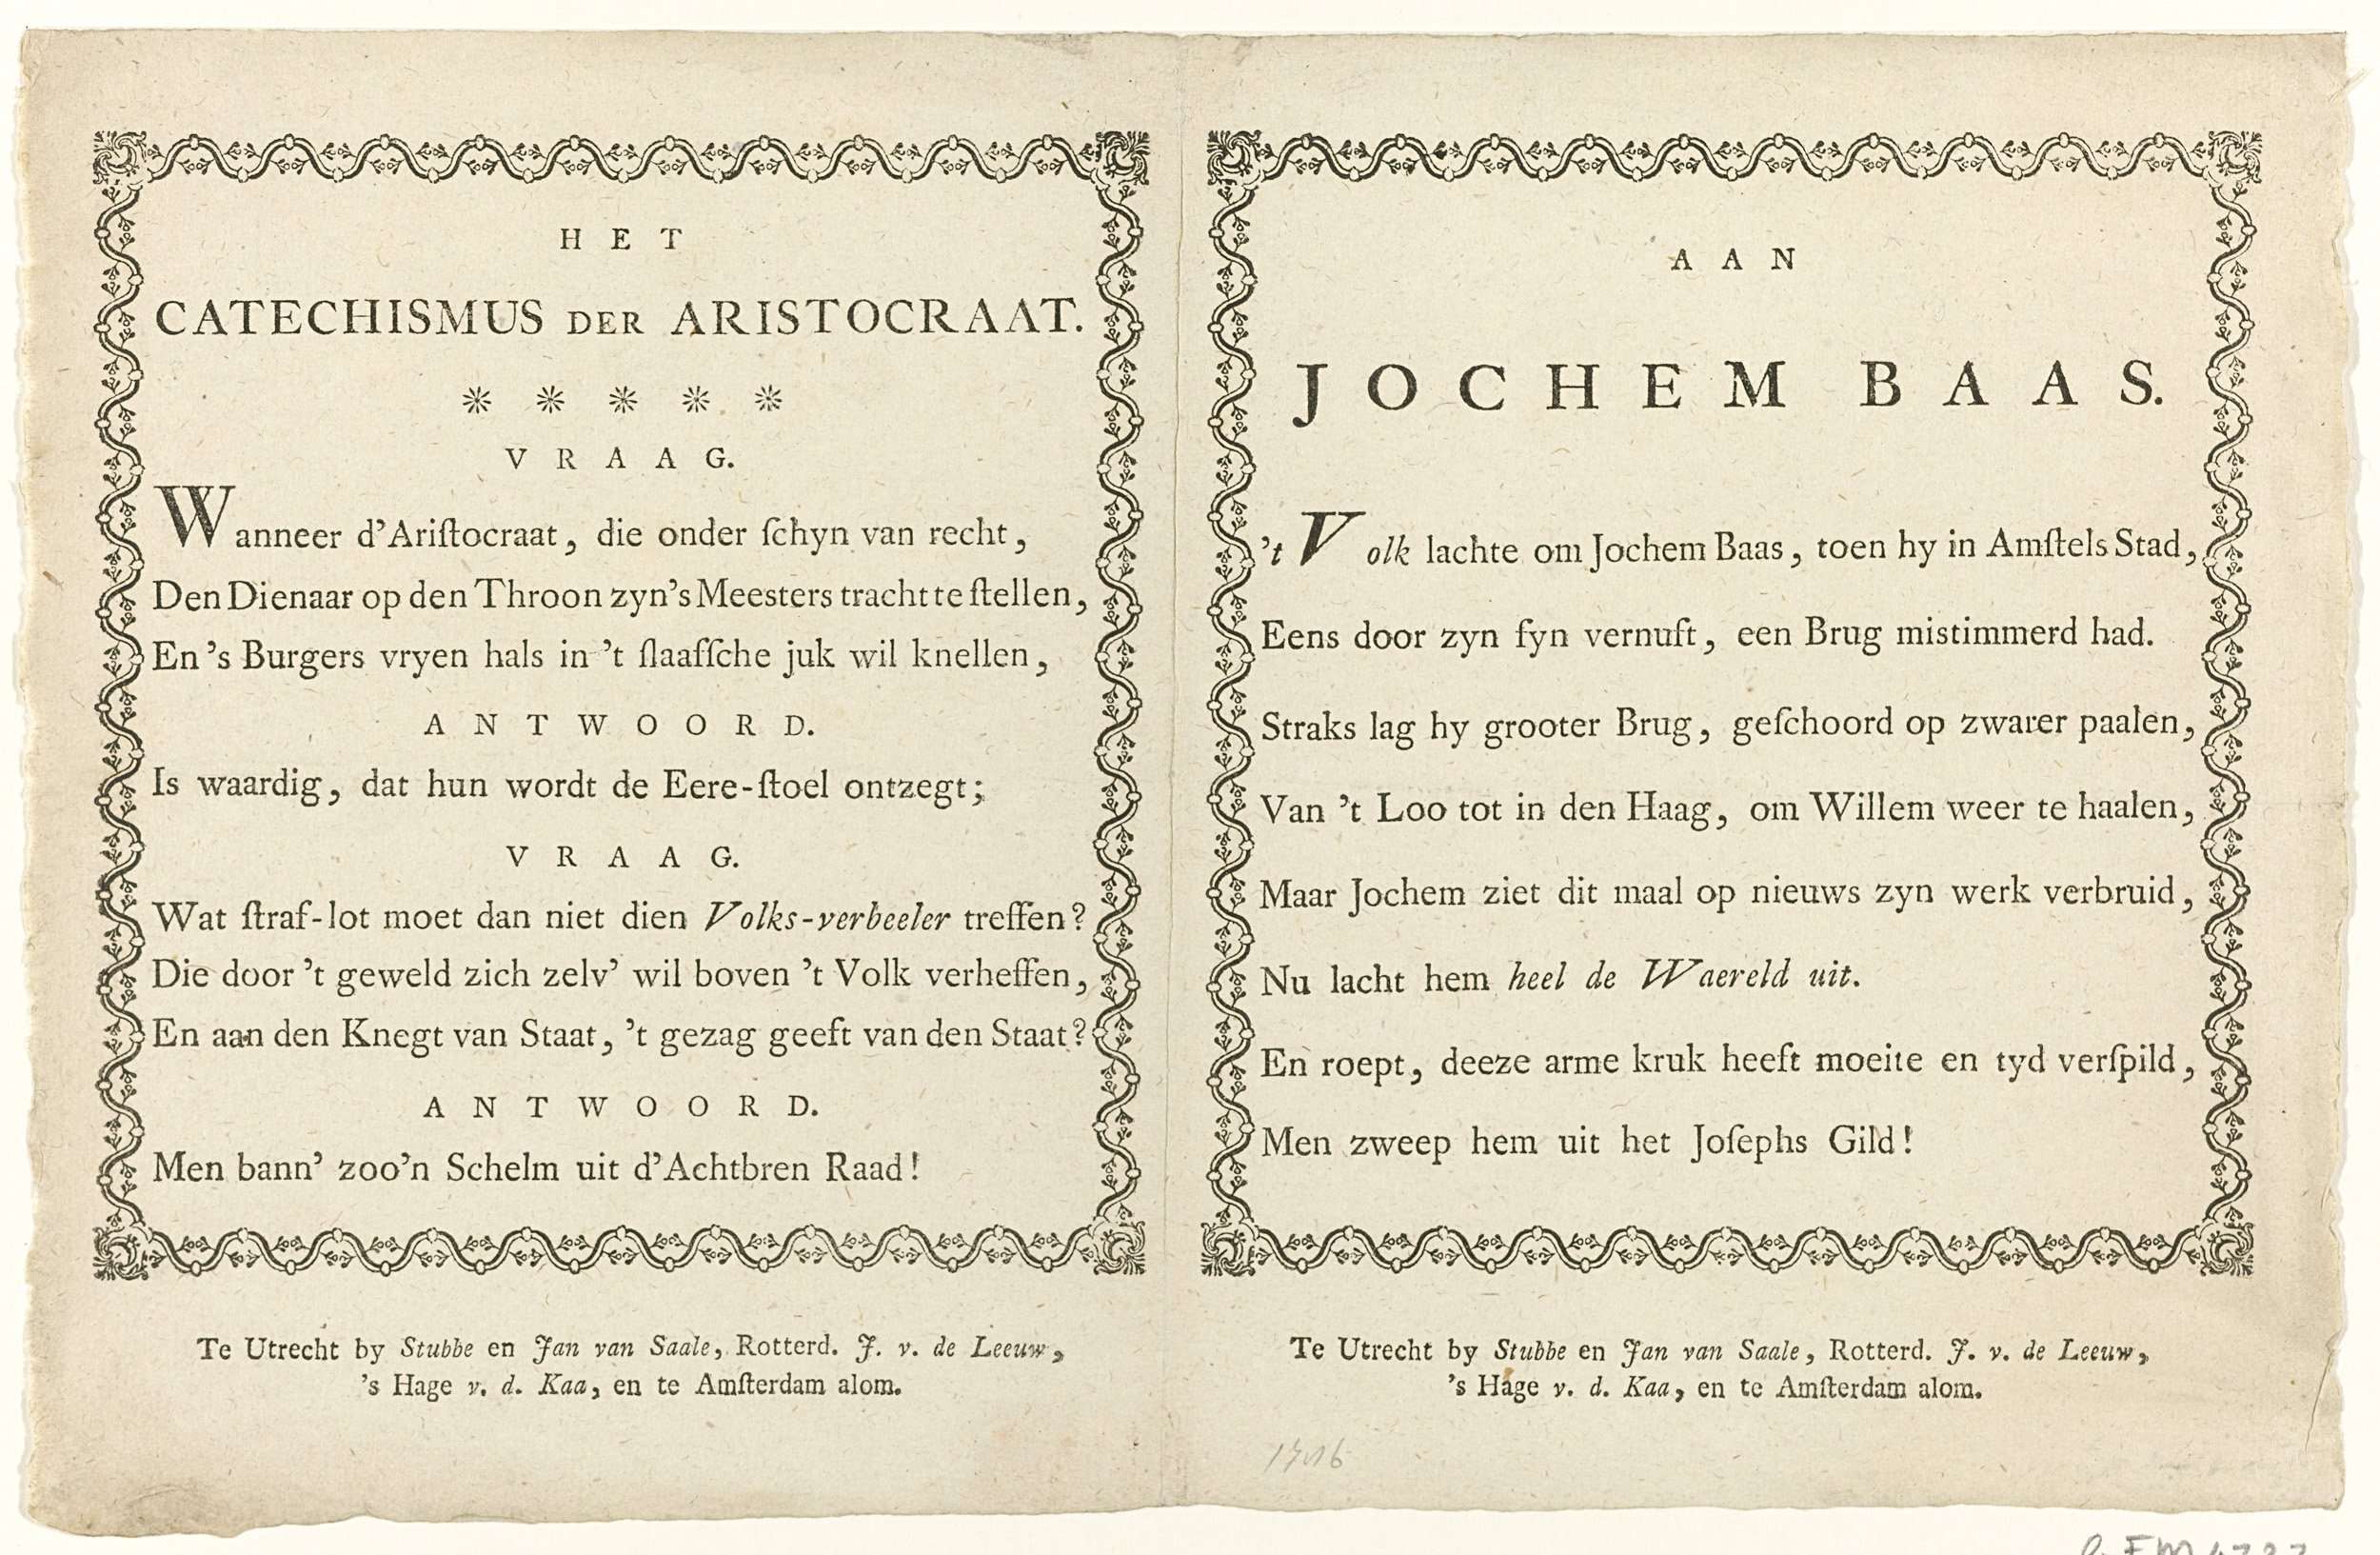 HET
CATECHISMUS DER ARISTOCRAAT.
* * * * *
VRAAG.
Wanneer d'Ariſtocraat, die onder ſchyn van recht,
Den Dienaar op den Throon zyn's Meesters tracht te ſtellen,
En 's Burgers vryen hals in 't ſlaafſche juk wil knellen,
ANTWOORD.
Is waardig, dat hun wordt de Eere-ſtoel ontzegt;
VRAAG.
Wat ſtraf-lot moet dan niet dien Volks-verbeeler treffen?
Die door 't geweld zich zelv' wil boven 't Volk verheffen,
En aan den Knegt van Staat, 't gezag geeft van den Staat?
ANTWOORD.
Men bann' zoo'n Schelm uit d'Achtbren Raad!
Te Utrecht by Stubbe en Jan van Saale, Rotterd. J. v. de Leeuw,
's Hage v. d. Kaa, en te Amſterdam alom.
AAN
JOCHEM BAAS.
't Volk lachte om Jochem Baas, toen hy in Amſtels Stad,
Eens door zyn fyn vernuft, een Brug mistimmerd had.
Straks lag hy grooter Brug, geſchoord op zwarer paalen,
Van 't Loo tot in den Haag, om Willem weer te haalen,
Maar Jochem ziet dit maal op nieuws zyn werk verbruid,
Nu lacht hem heel de Waereld uit.
En roept, deeze arme kruk heeft moeite en tyd verſpild,
Men zweep hem uit het Joſephs Gild!
Te Utrecht by Stubbe en Jan van Saale, Rotterd. J. v. de Leeuw,
's Hage v. d. Kaa, en te Amſterdam alom.